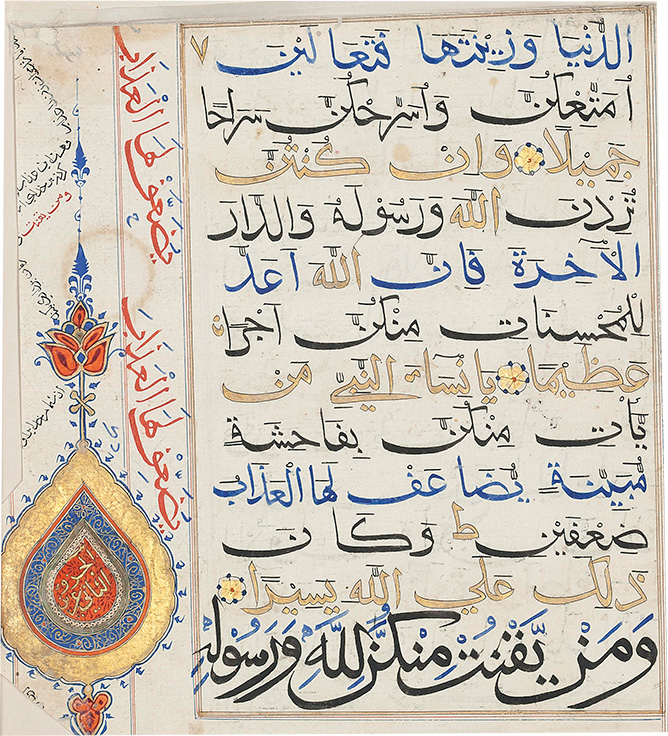 الدُّنْيَا وَزِينَتَهَا فَتَعَالَيْنَ
اُمَتِّعْكُنَّ وَاُسَرِّحْكُنَّ سَرَاحًا
جَمِيلًا وَاِنْ كُنْتُنَّ
تُرِدْنَ اللهَ وَرَسُولَهُ وَالدَّارَ
الْاٰخِرَةَ فَاِنَّ اللهَ اَعَدَّ
لِلْمُحْسِنَاتِ مِنْكُنَّ اَجْرًا
عَظِيمًا يَا نِسَاءَ النَّبِيِّ مَنْ
يَأْتِ مِنْكُنَّ بِفَاحِشَةٍ
مُبَيِّنَةٍ يُضَاعَفْ لَهَا الْعَذَابُ
ضِعْفَيْنِ ط وَكَانَ
ذٰلِكَ عَلَى اللهِ يَسِيرًا
وَمَنْ يَّقْنُتْ مِنْكُنَّ لِلّٰهِ وَرَسُولِهِ
يُضَعَّفْ لَهَا الْعَذَابُ
نُضَعِّفْ لَهَا الْعَذَابَ